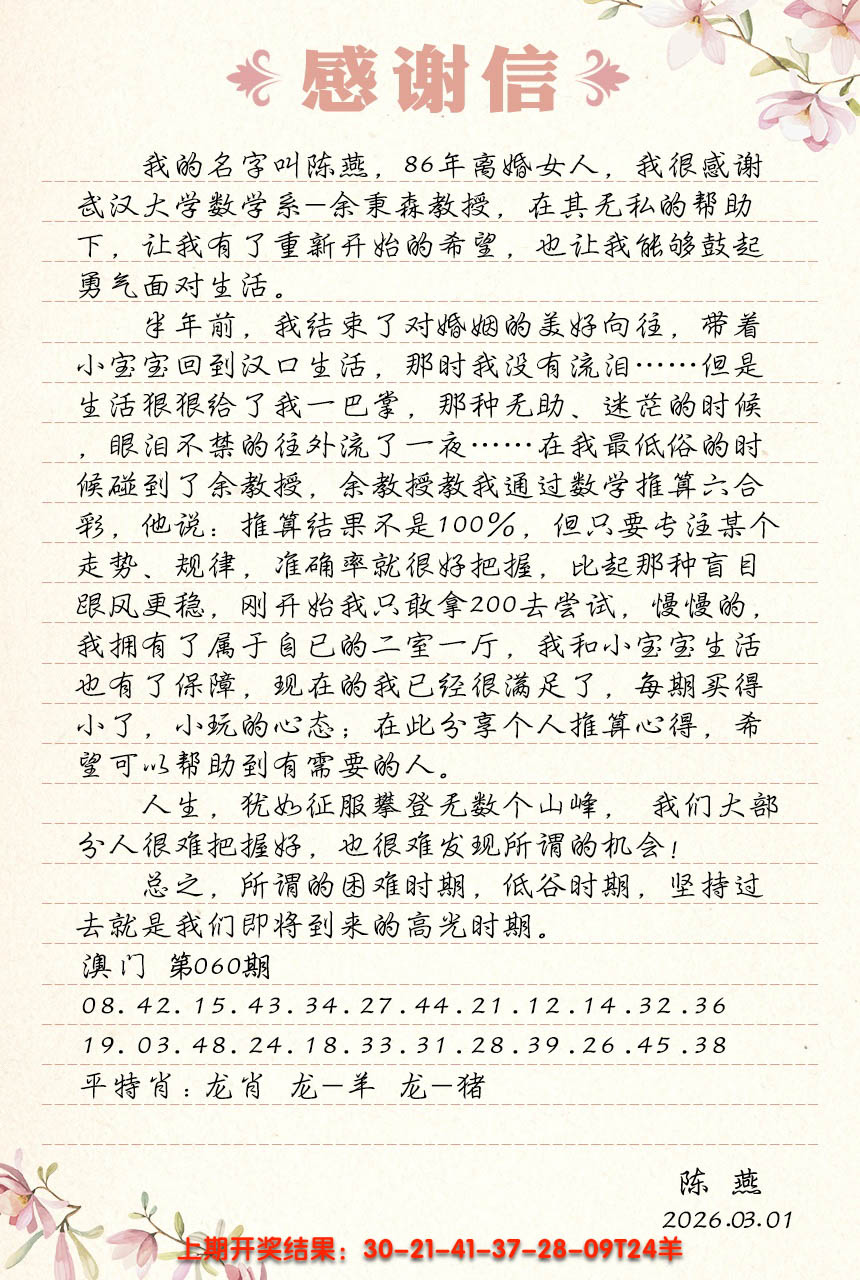 感谢信
我的名字叫陈燕，86年离婚女人，我很感谢
武汉大学数学系—余秉森教授，在其无私的帮助
下，让我有了重新开始的希望，也让我能够鼓起
勇气面对生活。
半年前，我结束了对婚姻的美好向往，带着
小宝宝回到汉口生活，那时我没有流泪……但是
生活狠狠给了我一巴掌，那种无助、迷茫的时候
，眼泪不禁的往外流了一夜……在我最低俗的时
候碰到了余教授，余教授教我通过数学推算六合
彩，他说：推算结果不是100%，但只要专注某个
走势、规律，准确率就很好把握，比起那种盲目
跟风更稳，刚开始我只敢拿200去尝试，慢慢的，
我拥有了属于自已的二室一厅，我和小宝宝生活
也有了保障，现在的我已经很满足了，每期买得
小了，小玩的心态；在此分享个人推算心得，希
望可以帮助到有需要的人。
人生，犹如征服攀登无数个山峰， 我们大部
分人很难把握好，也很难发现所谓的机会！
总之，所谓的困难时期，低谷时期，坚持过
去就是我们即将到来的高光时期。
澳门 第060期
08.42.15.43.34.27.44.21.12.14.32.36
19.03.48.24.18.33.31.28.39.26.45.38
平特肖：龙肖 龙—羊 龙—猪
陈 燕
2026.03.01
上期开奖结果：30-21-41-37-28-09T24羊